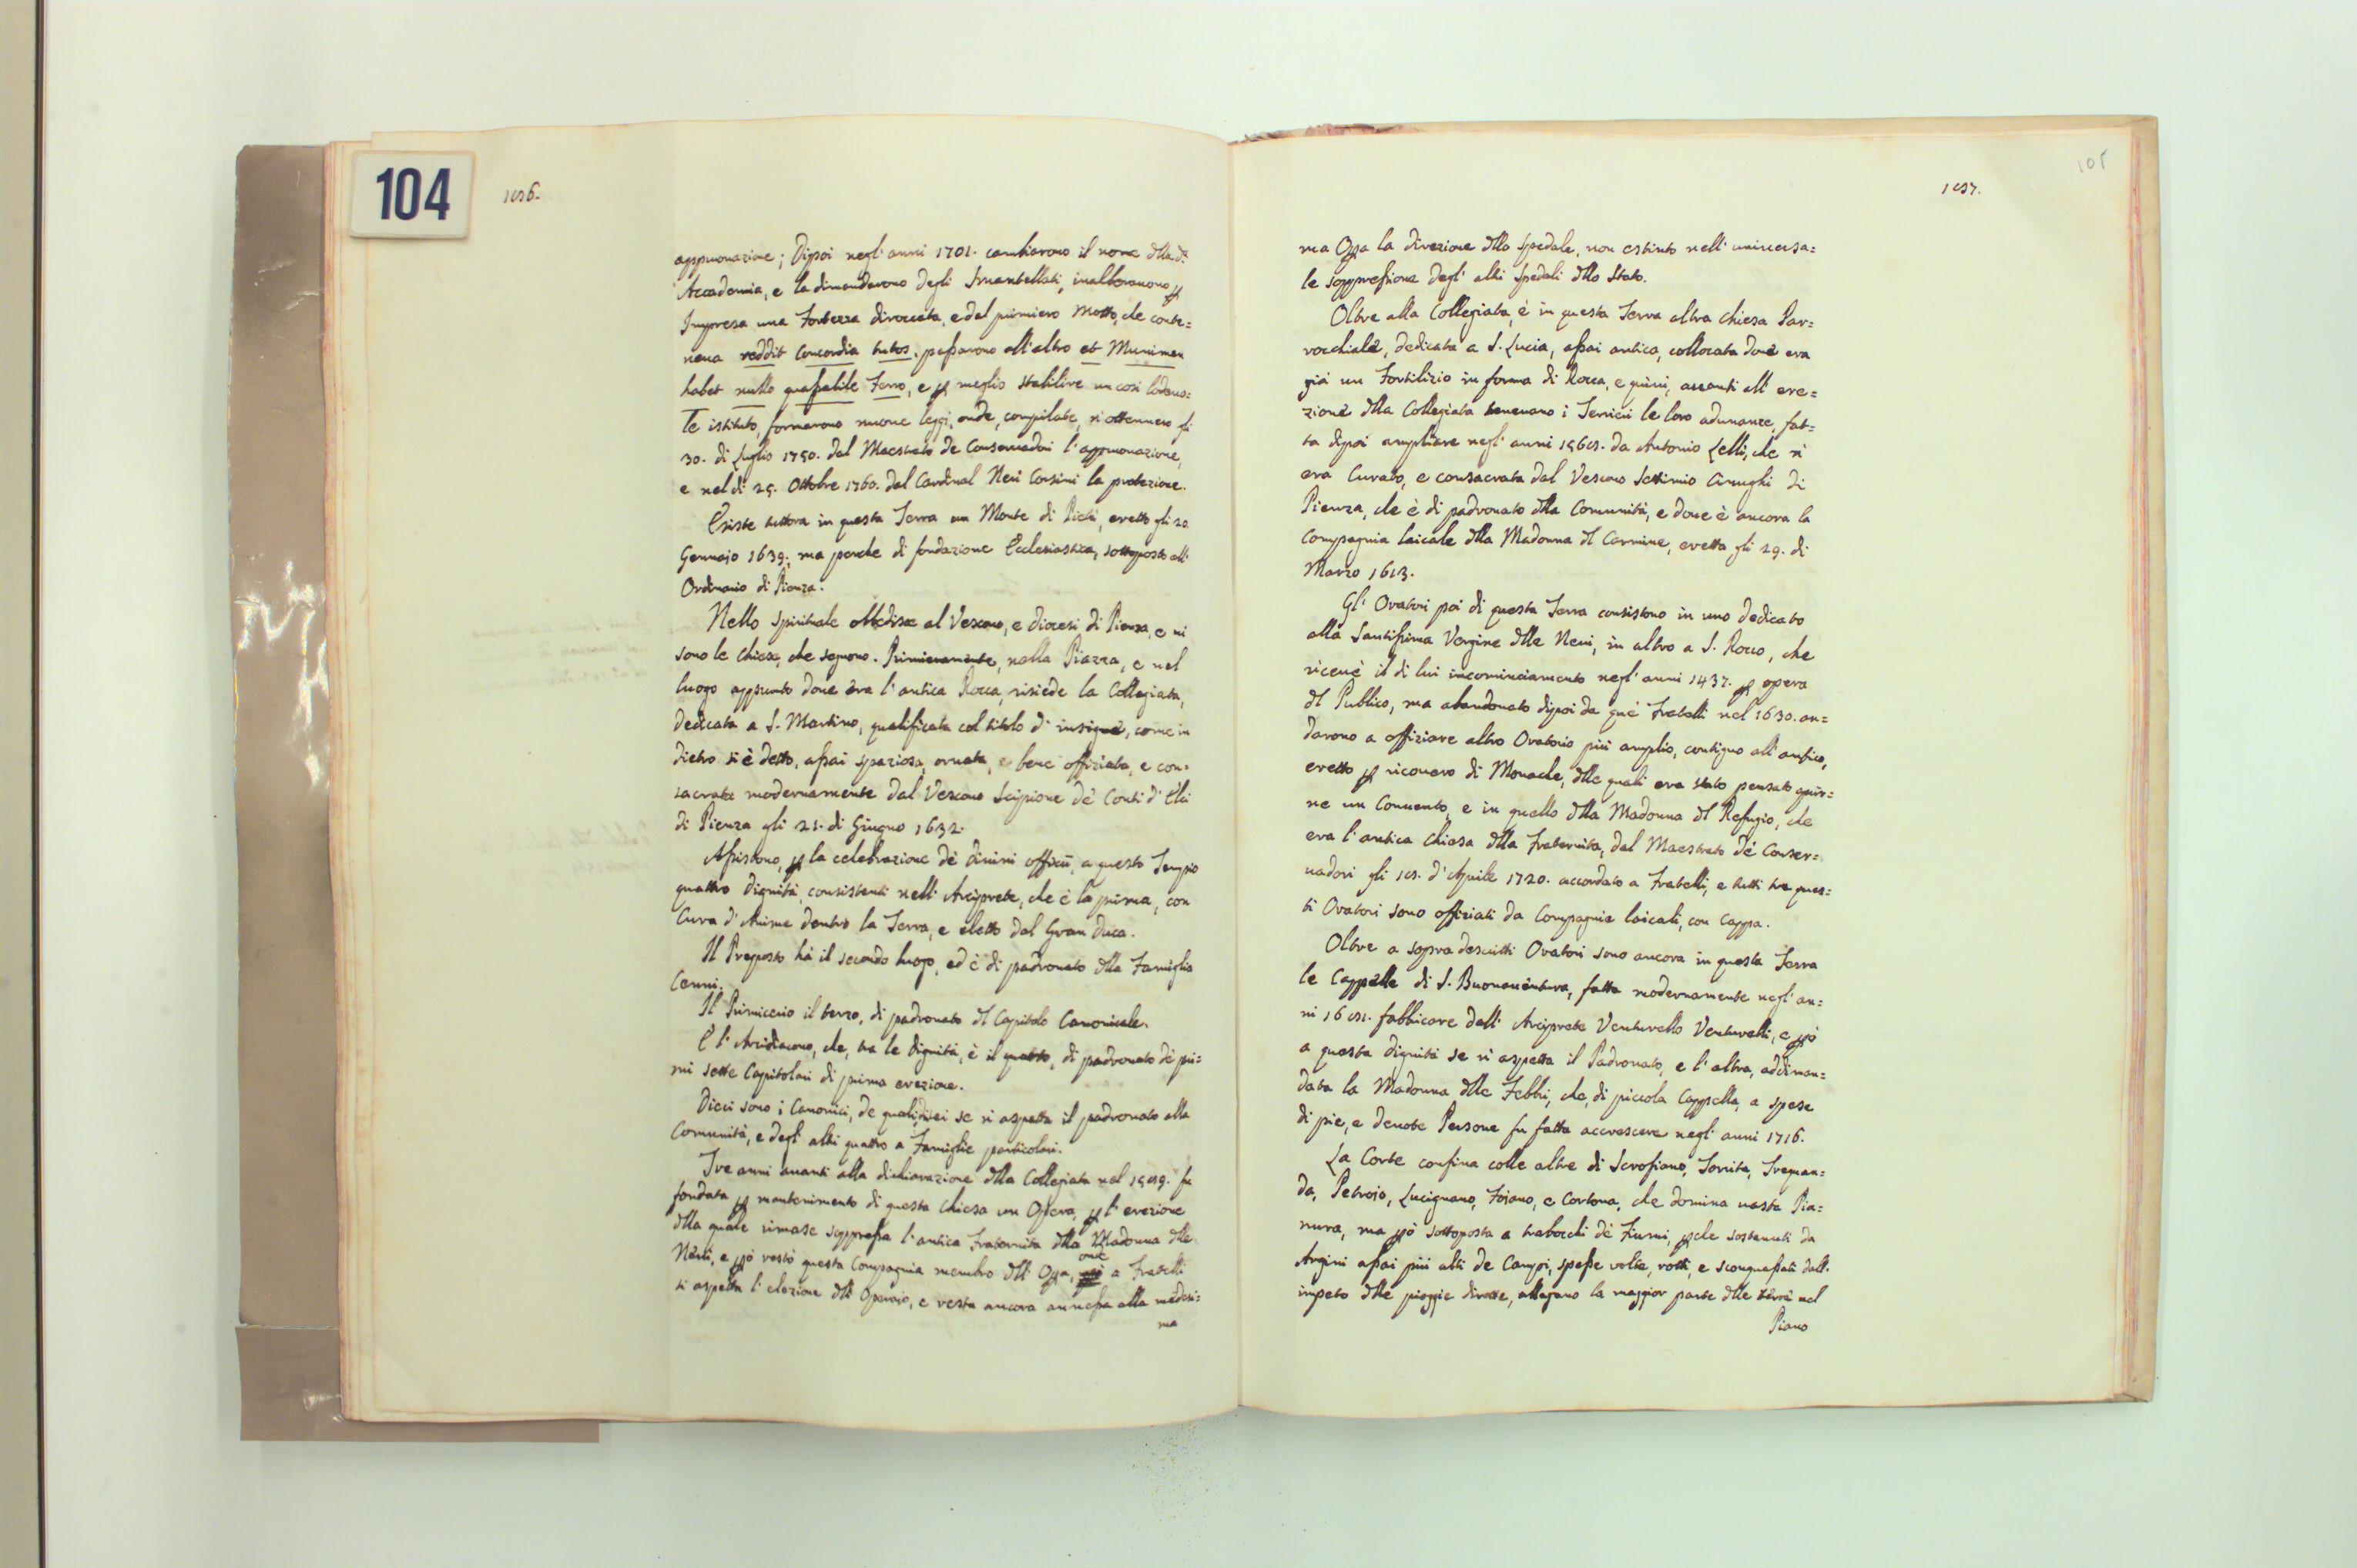 104
1056.
approuazione; Dipoi negl'anni 1701. cambiarono il nome dlla dì
Accademia, e la dimandarono degli Smantellati, inalberarono p
Impresa una Fortezza diroccata, e dal primiero Motto, che conte=
neua reddit Concordia tutos, passarono all'altro et Munimen
habet nullo quassabile Ferro, e p meglio stabilire un così lodeuo=
le istituto, formarono nuoue leggi, onde, compilate, n'ottennero gli
30. di Luglio 1750. dal Maestrato de Conseruadori l'approuazione,
e nel dì 25. Ottobre 1760. dal Cardinal Neri Corsini la protezione.
Esiste tuttora in questa Terra un Monte di Pietà, eretto gli 20.
Gennajo 1639; ma perche di fondazione Ecclesiastica, sottoposto all'
Ordinario di Pienza.
Nello Spirituale obbedisce al Vescouo, e diocesi di Pienza, e ui
sono le chiese, che seguono. Primieramente, nella Piazza, e nel
luogo appunto doue era l'antica Rocca, risiede la Collegiata,
dedicata a S. Martino, qualificata col titolo d'insigne, come in
dietro si è detto, assai spaziosa, ornata, e bene offiziata, e con=
sacrata modernamente dal Vescouo Scipione de' Conti d'Elci
di Pienza gli 21. di Giugno 1632.
Assistono, p la celebrazione de' diuini officij, a questo Tempio
quattro dignità, consistenti nell'Arciprete, che è la prima, con
Cura d'Anime dentro la Terra, e eletto dal Gran Duca.
Il Preposto hà il secondo luogo, ed è di padronato dlla Famiglia
Cenni.
Il Primicerio il terzo, di padronato dl Capitolo Canonicale.
E l'Arcidiacono, che, tra le dignità, è il quarto, di padronato de' pri=
mi sette Capitolari di prima erezione.
Dieci sono i Canonici, de quali, sei se n'aspetta il padronato alla
Comunità, e degl'altri quattro a Famiglie particolari.
Tre anni auanti alla dichiarazione dlla Collegiata nel fu
fondata p mantenimento di questa Chiesa un Opera, p l'erezione
dlla quale rimase soppressa l'antica Fraternita dlla Madonna dlle
Neui, e pò restò questa Compagnia membro dll'Opa, onde a Fratelli
si aspetta l'elezione dll'Operaio, e resta ancora annessa alla medesi=
ma
105
1057.
ma Opa la direzione dllo Spedale, non estinto nell'uniuersa=
le soppressione degl'altri Spedali dllo Stato.
Oltre alla Collegiata, è in questa Terra altra chiesa Par=
rocchiale, dedicata a S. Lucia, assai antica, collocata doue era
già un Fortilizio in forma di Rocca, e quiui, auanti all'ere=
zione dlla Collegiata teneuano i Terrieri le loro adunanze, fat=
ta dipoi ampliare negl'anni da Antonio Lelli, che n'
era Curato, e consacrata dal Vescouo Settimio Cinughi di
Pienza, che è di padronato dlla Comunità, e doue è ancora la
Compagnia laicale dlla Madonna dl Carmine, eretta gli 29. di
Marzo 1613.
Gl'Oratori poi di questa Terra consistono in uno dedicato
alla Santissima Vergine dlle Neui, in altro a S. Rocco, che
riceuè il di lui incominciamento negl'anni 1437. p opera
dl Publico, ma abandonato dipoi da que' Fratelli nel 1630. an=
darono a offiziare altro Oratorio più amplio, contiguo all'antico,
eretto p ricouero di Monache, dlle quali era stato pensato aprir=
ne un Conuento, e in quello dlla Madonna dl Refugio, che
era l'antica chiesa dlla Fraternita, dal Maestrato de' Conser=
uadori gli d'Aprile 1720. accordato a Fratelli, e tutti tre ques=
ti Oratori sono offiziati da Compagnie laicali, con Cappa.
Oltre a sopra descritti Oratori sono ancora in questa Terra
le Cappelle di S. Buonauentura, fatta modernamente negl'an=
ni fabbricare dall'Arciprete Venturello Venturelli, e pò
a questa dignità se n'aspetta il Padronato, e l'altra, addiman=
data la Madonna dlle Febbri, che, di piccola Cappella, a spese
di pie, e deuote Persone fu fatta accrescere negl'anni 1716.
La Corte confina colle altre di Scrofiano, Torrita, Trequan=
da, Petroio, Lucignano, Foiano, e Cortona, che domina uasta Pia=
nura, ma pò sottoposta a trabocchi de' Fiumi, pche sostenuti da
Argini assai più alti de Campi, spesse volte, rotti, e sconquassati dall'
impeto dlle pioggie dirotte, allagano la maggior parte dlle terre nel
Piano